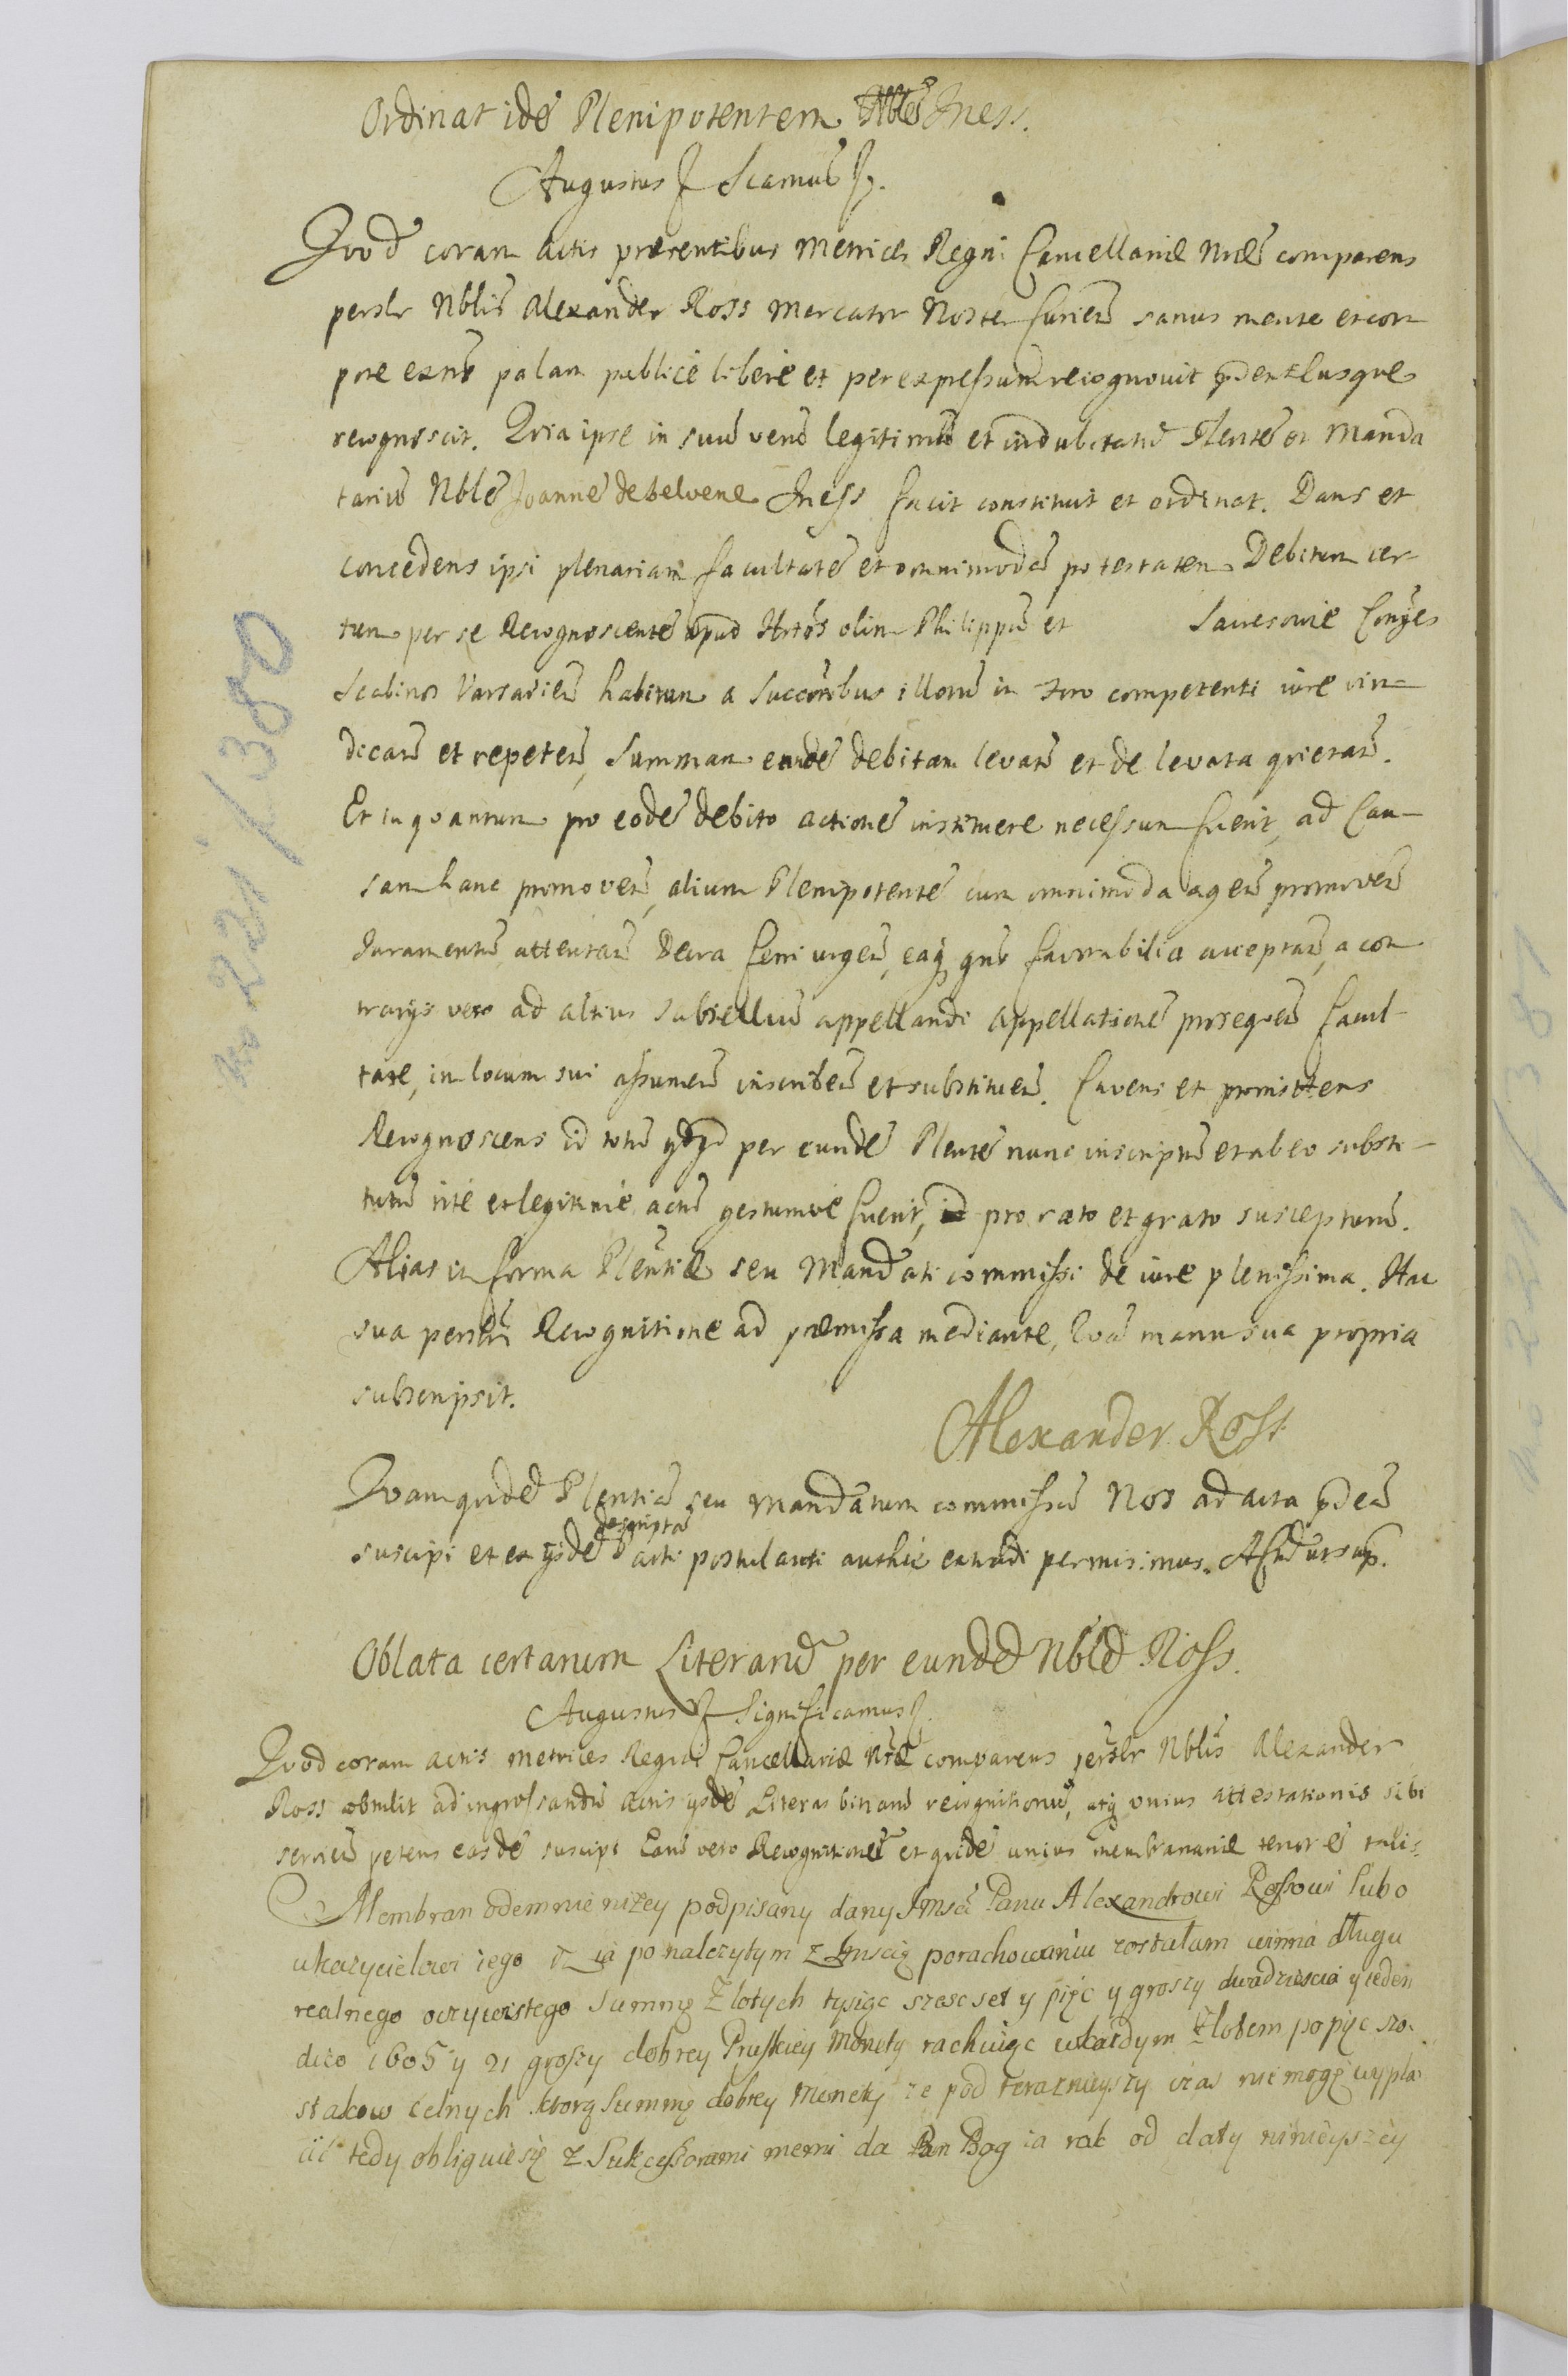 Ordinat idẽ Plenipotentem Ness.
Augustus Scamus
Quod coram Actis præsentibus Metrices Regni Cancellariæ Nræ comparens
persr Nblis Alexander Ross Mercator Noster Curien sanus mente et cor
pore exns palam publicè liberè et per expressum recognovit
recognoscit. Quia ipse in suũ verũ legitimũ et indubitatũ Plentẽ et Manda
tariũ Nblẽ Joannẽ de belvene Iness facit constituit et ordinat. Dans et
concedens ipsi plenariam facultatẽ et omnimodã potestatem Debitum cer
tum per se Recognoscentẽ apud olim Philippũ et
Scabinos Varsavien habitum a Succoribus illorũ in foro competenti iure vin
dicare et repetere, Summam eandẽ debitam levare et de levata quietare.
Et in quantum pro eodẽ debito actionẽ instituere necessum fuerit, ad Cau
sam hanc promovere, alium Plenipotentẽ cum omnimoda agere promovere
Juramentũ attentare Decra ferri urgere, eaq favorabilia acceptare, a con
trarys vero ad altius subselliũ appellandi appellationẽ prosequere facul
tate, in locum sui assumere inscribere et substituere. Cavens et promittens
Recognoscens id totũ per eundẽ Plentẽ nunc inscriptũ et ab eo substi
tutũ ritè et legitimè actũ gestumvè fuerit, id pro rato et grato suscepturũ.
Alias in forma Plentiæ seu Mandati commissi de iure plenissima. Hac
sua persli Recognitione ad præmissa mediante, Quã manu sua propria
subscripsit.
Alexander Ross
Quamquidẽ Plentiã seu Mandatum commissũ Nos ad acta
descriptã
suscipi et ex ysdẽ parti postulanti authẽ extradi permisimus. ut sup.
Oblata certarum Literarũ per eundẽ Nblẽ Ross.
Augustus Significamus
Quod coram actis metrices Regni Cancellariæ Nræ comparens perslr Nblis Alexander
Ross obtulit ad ingrossandũ Actis ysdẽ Literas binarũ recognitionũ, atq unius attestationis sibi
servien petens easdẽ suscipi Earũ vero Recognitionẽ et quidẽ unius membrananiæ tenor ẽ talis
Membran odemnie niżey podpisany dany Jmsci Panu Alexandrowi Rossowi lubo
ukazycielowi iego iz ia po nalezytym z Jmscią porachowaniu zostałam winna długu
realnego oczywistego Summę Złotych tysiąc szescset y pięc y groszy dwadziescia y ieden
dico 1605 y 21 groszy dobrey Pruskiey Monety rachuiąc wkazdym Złotem po pięc szo
stakow celnych ktorą Summę dobrey Monety ze pod terazneyszy czas nie mogę wypła
cic tedy obliguie się z Sukcessorami memi da Pan Bog ia rok od daty ninieyszey
no 221 / 380